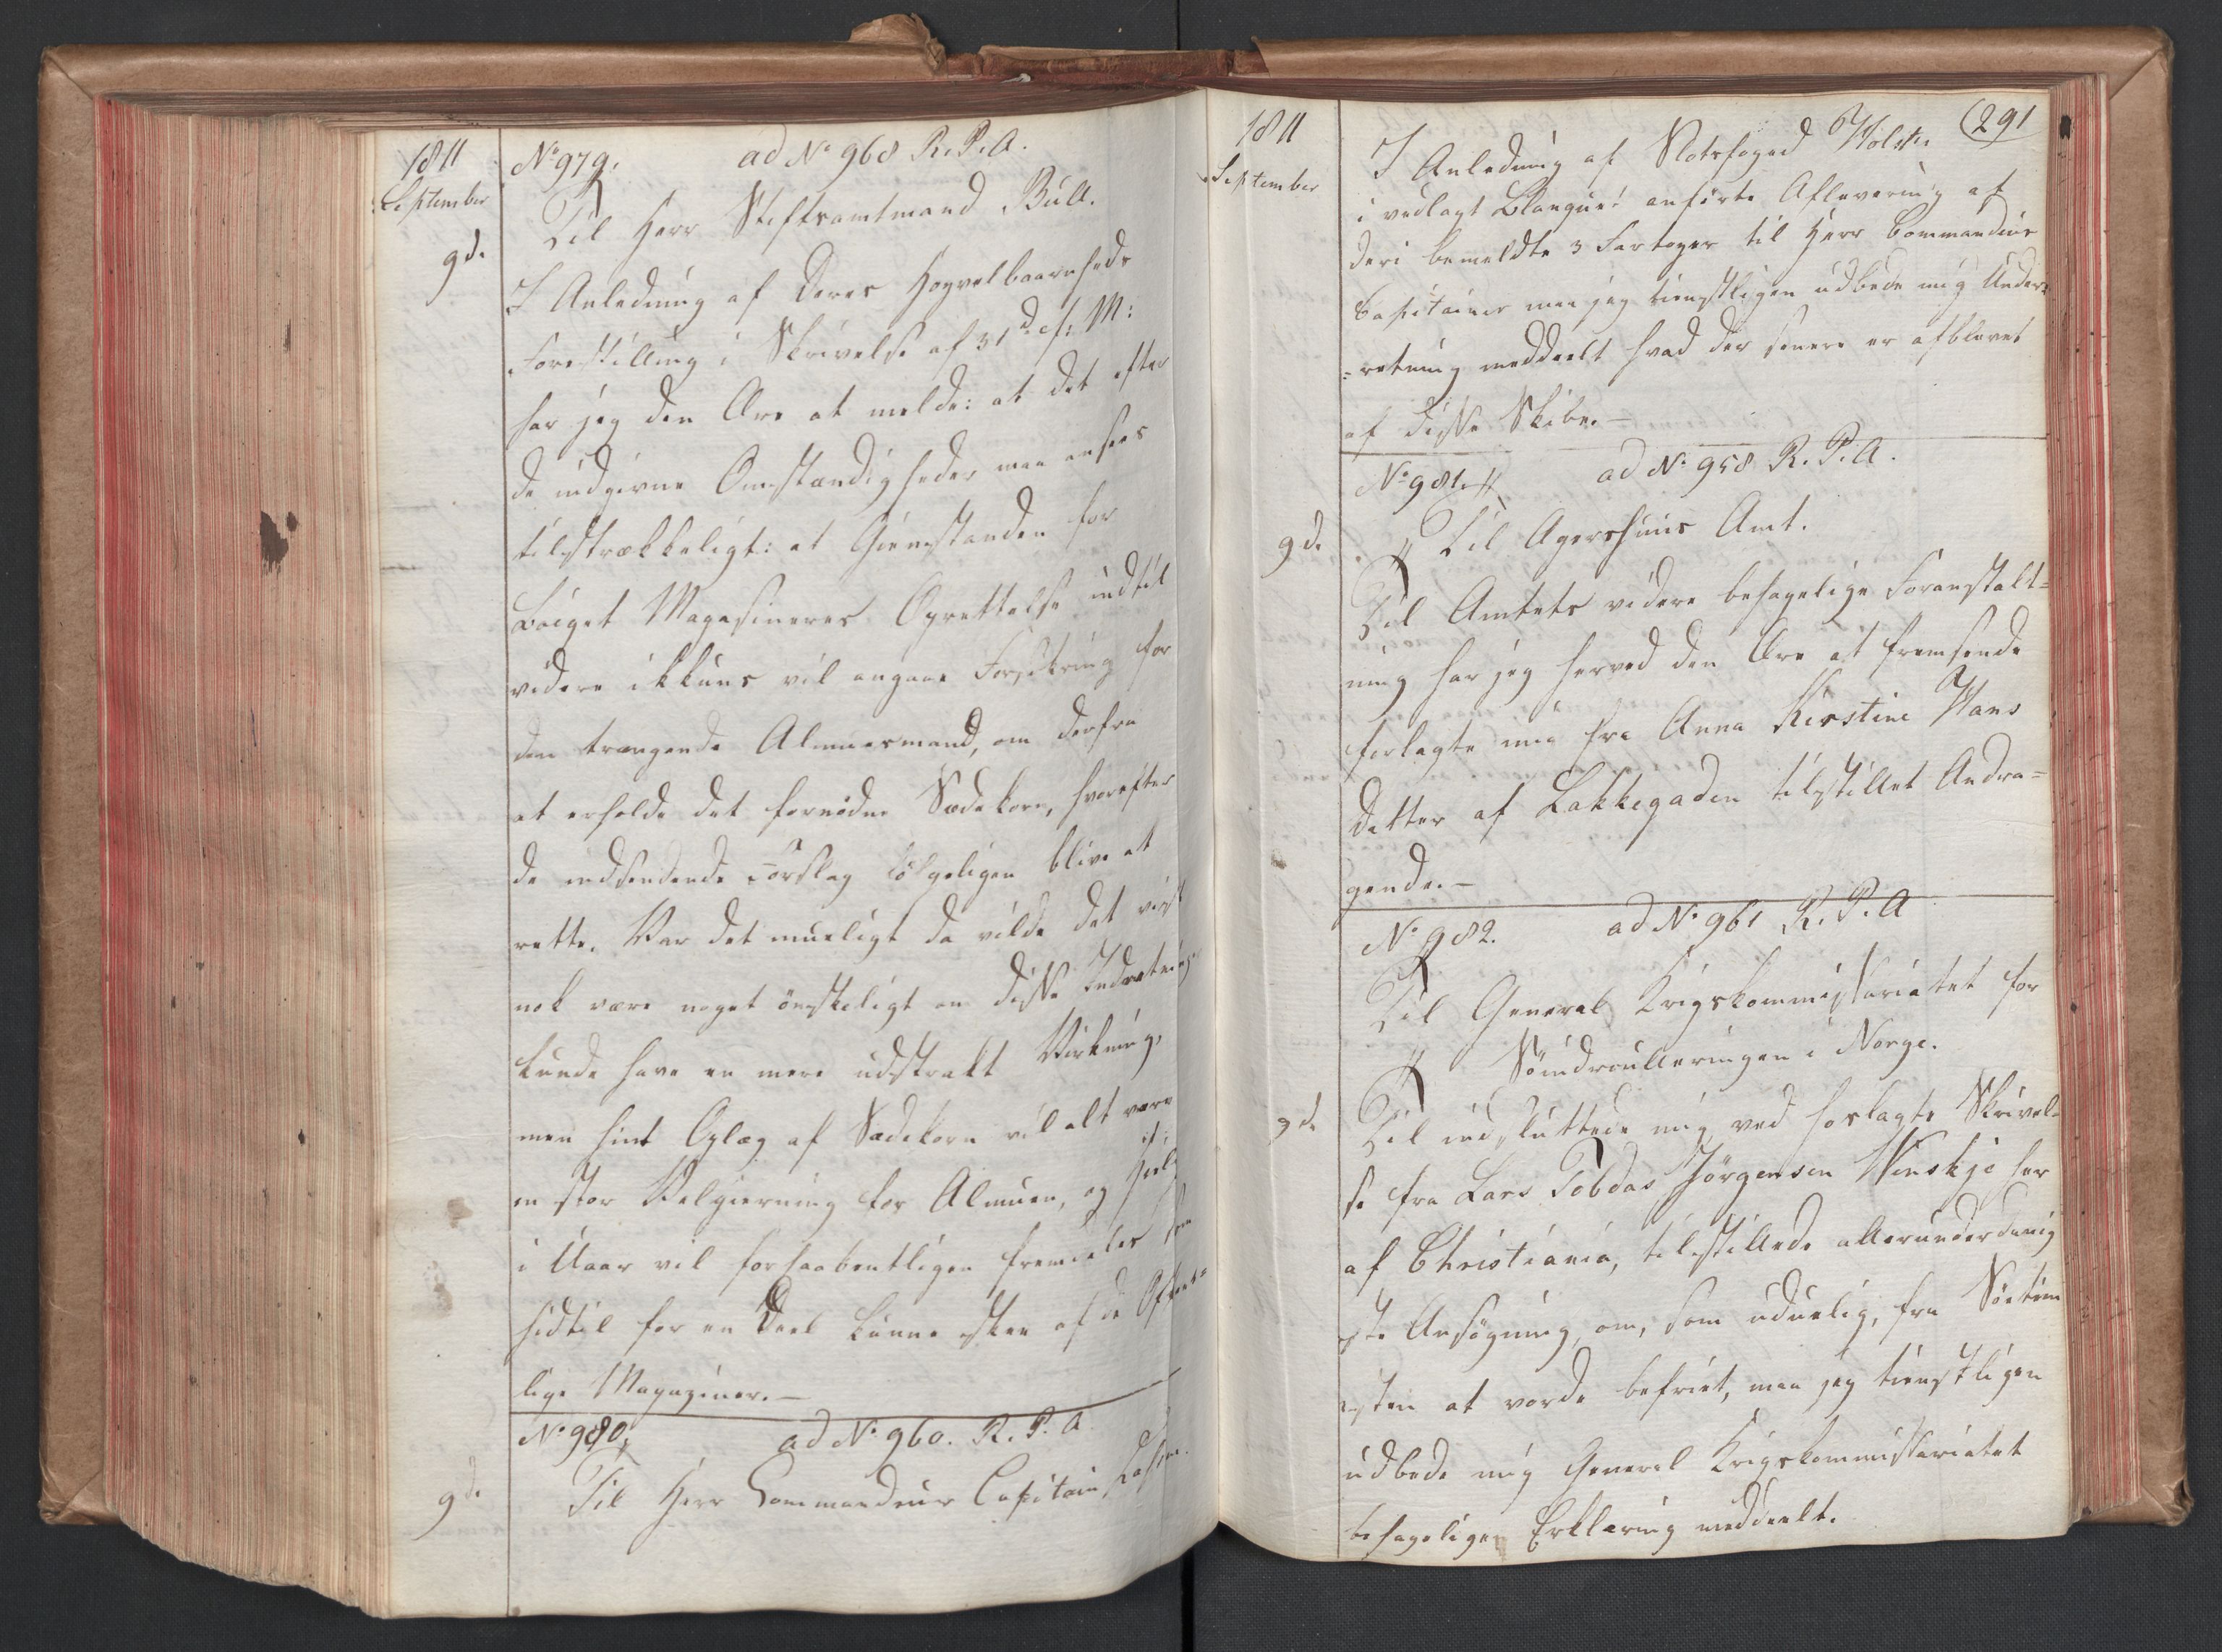 1811
September
9d.
No 979. ad No 968 R.P.A.
Til Herr Stiftsamtmand Bull.
I Anledning af Deres Høyvelbaarnheds
Forestilling i Skrivelse af 31d f: M:
har jeg den Ære at melde: at det efter
de indgivne Omstændigheder maa ansees
tilstrækkeligt: at Gienstanden for
Magasiners Oprettelse indtil
videre ikkuns vil angaae Forsikring for
den trængende Almuesmand, om derfra
at erholde det fornødne Sædekorn, hvorefter
de indsendende Forslag følgeligen blive at
rette. Var det mueligt da vilde det vist
nok være noget ønskeligt om disse Indretninger
kunde have en mere udstrakt Virkning,
men hint Oplag af Sædekorn vil alt være
en stor Velgierning for Almuen, og
i Uaar vil forhaabentligen fremdeles som
hidtil for en Deel kunne skee af de Offent=
lige Magaziner.—
No 980. ad No 960. R.P.A.
9d.
Til Herr Commandeur Capitain
1811
September
291
I Anledning af Slotsfoged Holst
i vedlagt Blanquet anførte Aflevering af
deri bemeldte 3 Fartøyer til Herr Commandeur
Capitainer maa jeg tienstligen udbede mig Under=
=retning meddeelt hvad der senere er afblevet
af disse Skibe.—
No 981. ad No 958 R.P.A.
9d.
Til Agershuus Amt.
Til Amtets videre behagelige Foranstalt=
ning har jeg herved den Ære at fremsende
hoslagte mig fra Anna Kirstine Hans
datter af Lakkegaden tilstillet Andra=
gende.—
No 982. ad No 961 R.P.A
Til General Krigskommissariatet for
Søindroulleringen i Norge.
9d.
Til indsluttede mig ved hoslagte Skrivel=
se fra Lars Tobdas Jörgensen Winskje her
af Christiania, tilstillede allerunderdanig
ste Ansøgning, om, som uduelig, fra Søetien
esten at vorde befriet, maa jeg tienstligen
udbede mig General Krigskommissariatet
behageligen Erklæring meddeelt.